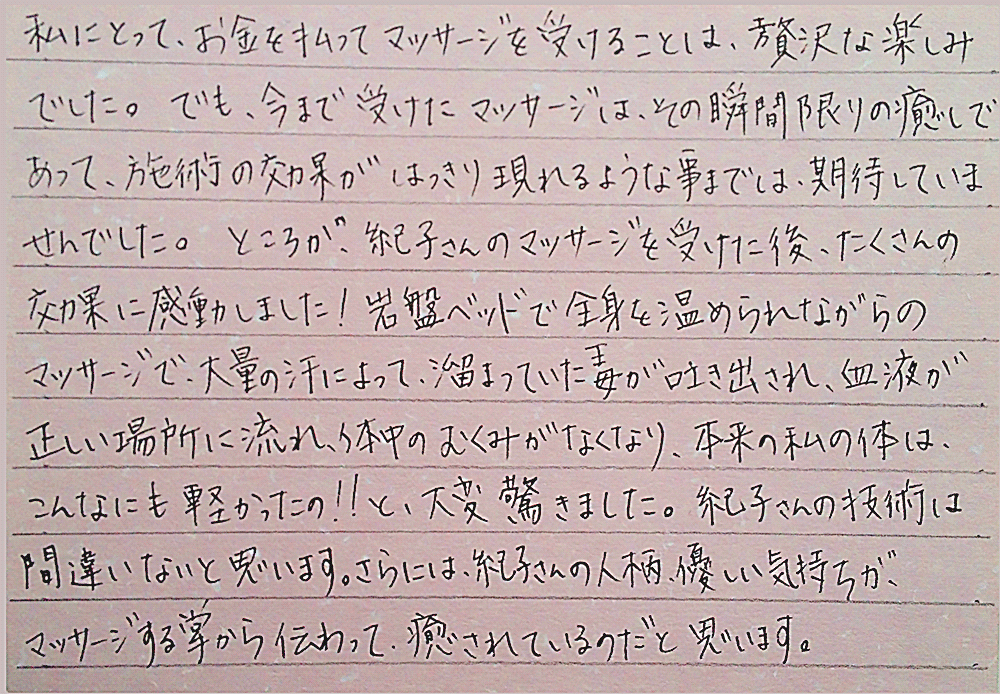 私にとって、お金を払ってマッサージを受けることは、贅沢な楽しみ
でした。でも、今まで受けたマッサージは、その瞬間限りの癒しで
あって、施術の効果がはっきり現れるような事までは、期待していま
せんでした。ところが、紀子さんのマッサージを受けた後、たくさんの
効果に感動しました！岩盤ベッドで全身を温められながらの
マッサージで、大量の汗によって、溜まっていた毒が吐き出され、血液が
正しい場所に流れ、体中のむくみがなくなり、本来の私の体は、
こんなにも軽かったの！！と、大変驚きました。紀子さんの技術は
間違いないと思います。さらには、紀子さんの人柄、優しい気持ちが、
マッサージする掌から伝わって、癒されているのだと思います。